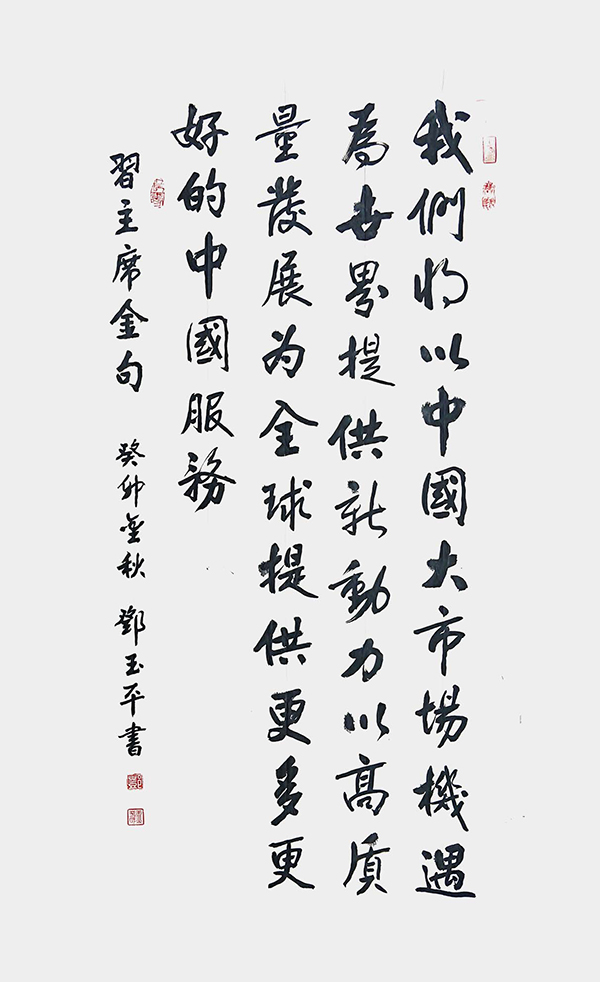 我們将以中國大市場機遇
為世界提供新動力以高质
量發展为全球提供更多更
好的中國服務
習主席金句 癸卯金秋 鄧玉平書